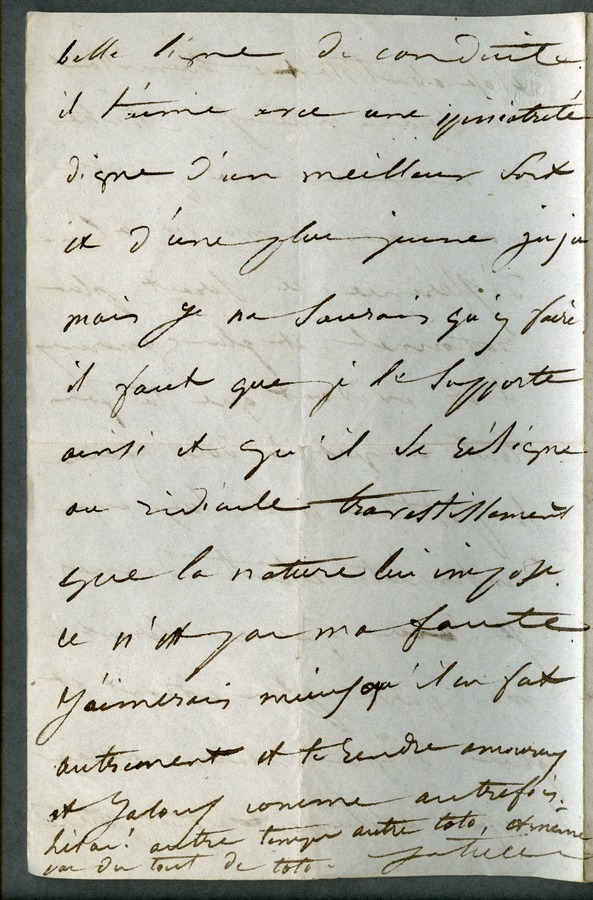 belle ligne de conduite
il t'aime avec une opiniâtreté
digne d'un meilleur sort
et d'une plus jeune juju
mais je ne saurais qu'y faire
il faut que je le supporte
ainsi et qu'il se résigne
au ridicule travestissement
que la nature lui impose.
ce n'est pas ma faute
J'aimerais mieux qu'il en fut
autrement et te rendre amoureux
et Jaloux comme autrefois.
hélas! autre temps autre toto, et même
pas du tout de toto. Juliette